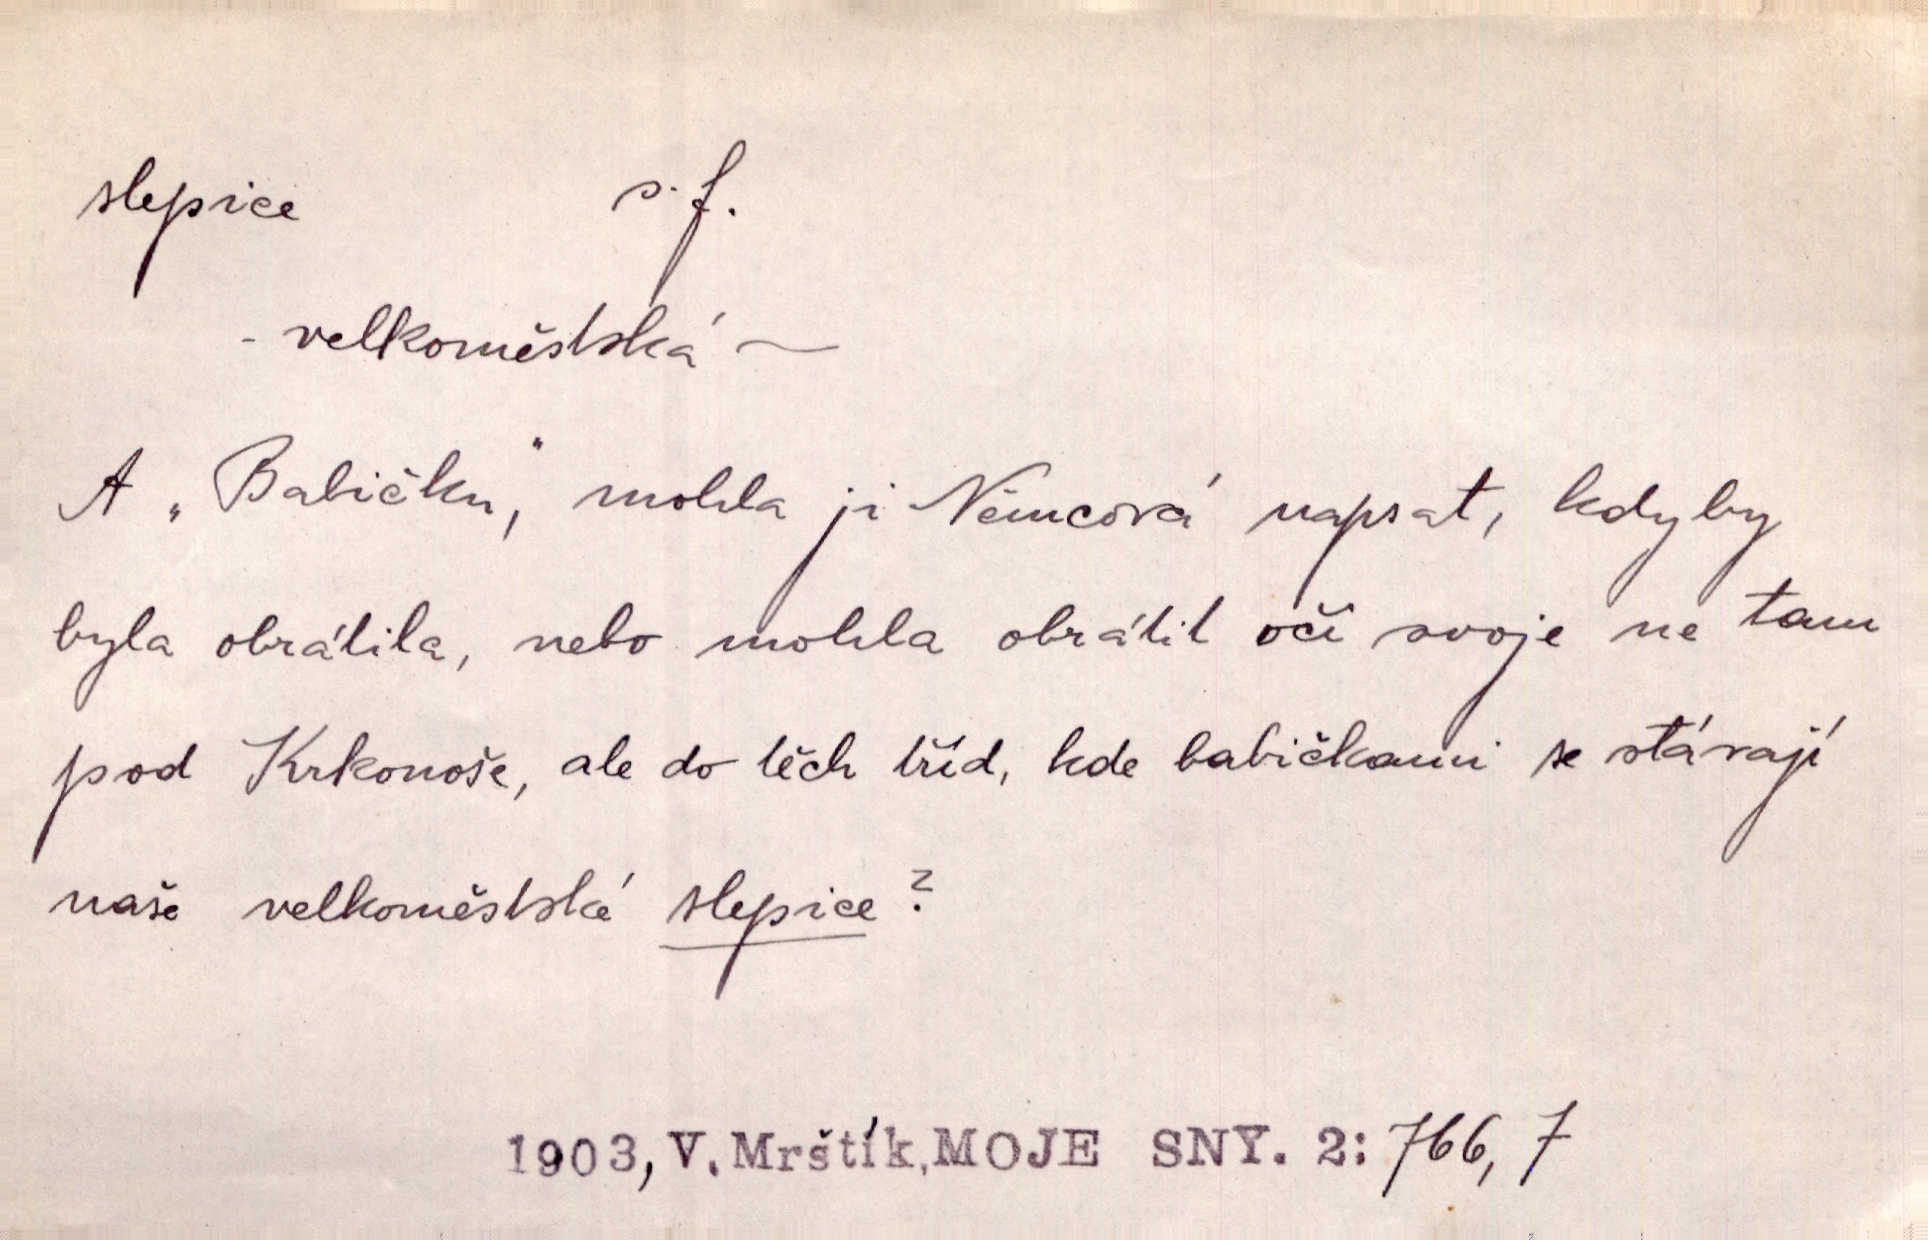 slepice s. f.
- velkoměstská ~
A „Babičku,“ mohla ji Němcová napsat, kdyby
byla obrátila, nebo mohla obrátit oči svoje ne tam
pod Krkonoše, ale do těch tříd, kde babičkami se stávají
naše velkoměstské slepice?
1903, V. Mrštík, MOJE SNY. 2: 766, 7